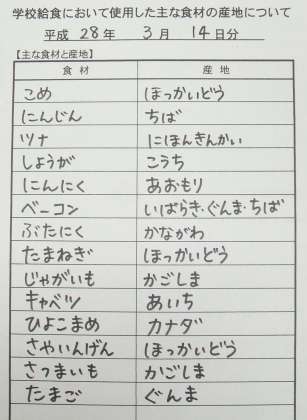 学校給食において使用した主な食材の産地について
平成 28 年 3 月 14 日分
【主な食材と産地】
食材 産地
こめ ほっかいどう
にんじん ちば
ツナ にほんきんかい
しょうが こうち
にんにく あおもり
ベーコン いばらき・ぐんま・ちば
ぶたにく かながわ
たまねぎ ほっかいどう
じゃがいも かごしま
キャベツ あいち
ひよこまめ カナダ
さやいんげん ほっかいどう
さつまいも かごしま
たまご ぐんま